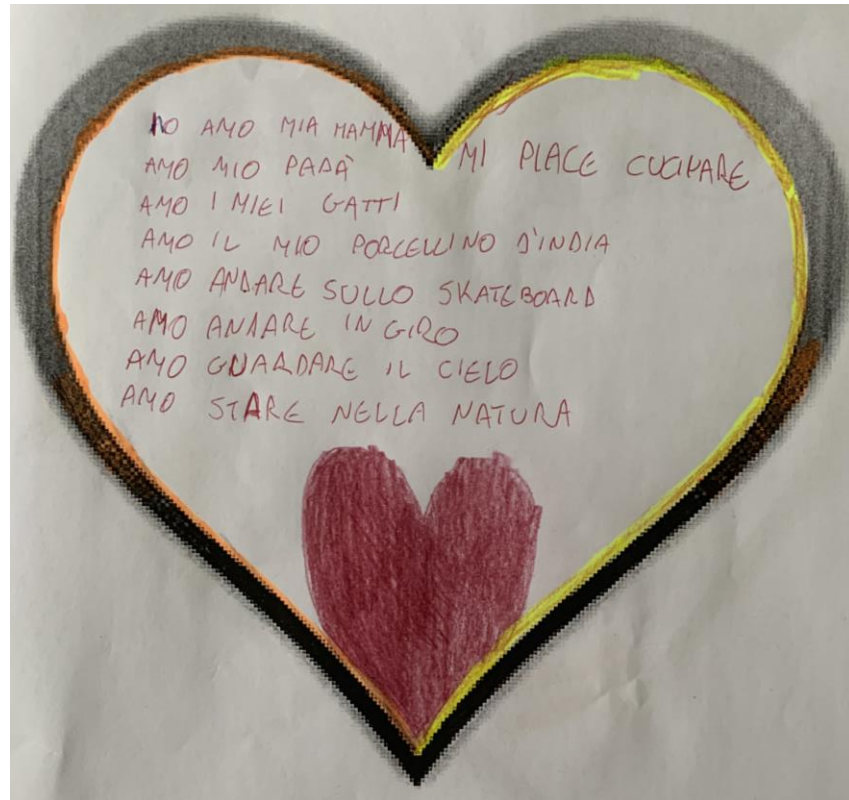 IO AMO MIA MAMMA
AMO MIO PAPÀ
AMO I MIEI GATTI
AMO IL MIO PORCELLINO D'INDIA
AMO ANDARE SULLO SKATEBOARD
AMO ANDARE IN GIRO
AMO GUARDARE IL CIELO
AMO STARE NELLA NATURA
MI PIACE CUCINARE